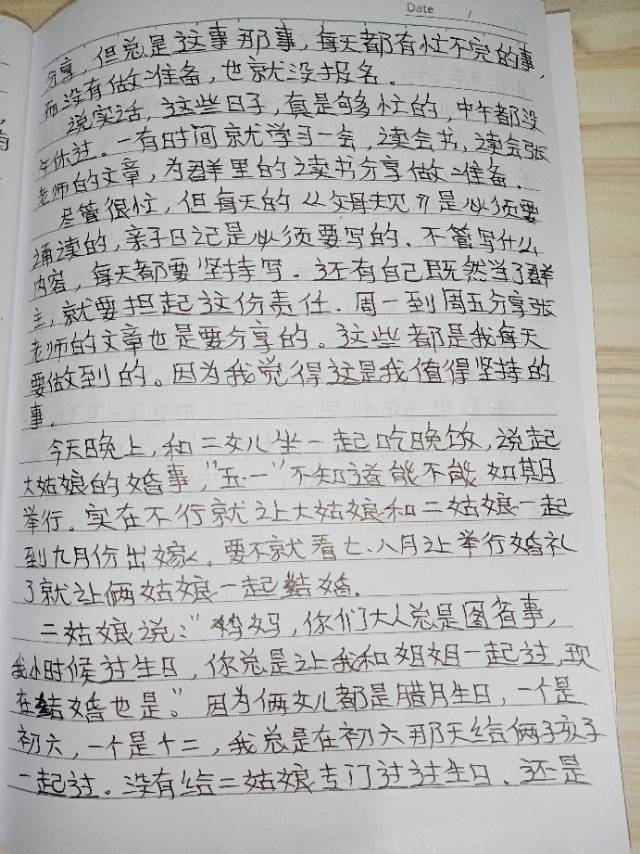 Date /
分享，但总是这事那事，每天都有忙不完的事，
而没有做准备，也就没报名．
说实话，这些日子，真是够忙的，中午都没
午休过．一有时间就学习一会，读会书，读会张
老师的文章，为群里的读书分享做准备．
尽管很忙，但每天的《父母规》是必须要
诵读的，亲子日记是必须要写的．不管写什么
内容，每天都要坚持写．还有自己既然当了群
主，就要担起这份责任．周一到周五分享张
老师的文章也是要分享的。这些都是我每天
要做到的。因为我觉得这是我值得坚持的
事。
今天晚上，和二女儿坐一起吃晚饭，说起
大姑娘的婚事，"五·一"不知道能不能如期
举行．实在不行就让大姑娘和二姑娘一起
到九月份出嫁．要不就看七、八月让举行婚礼
了就让俩姑娘一起结婚．
二姑娘说："妈妈，你们大人总是图省事，
我小时候过生日，你总是让我和姐姐一起过，现
在结婚也是。"因为俩女儿都是腊月生日，一个是
初六，一个是十二，我总是在初六那天给俩孩子
一起过．没有给二姑娘专门过过生日．还是